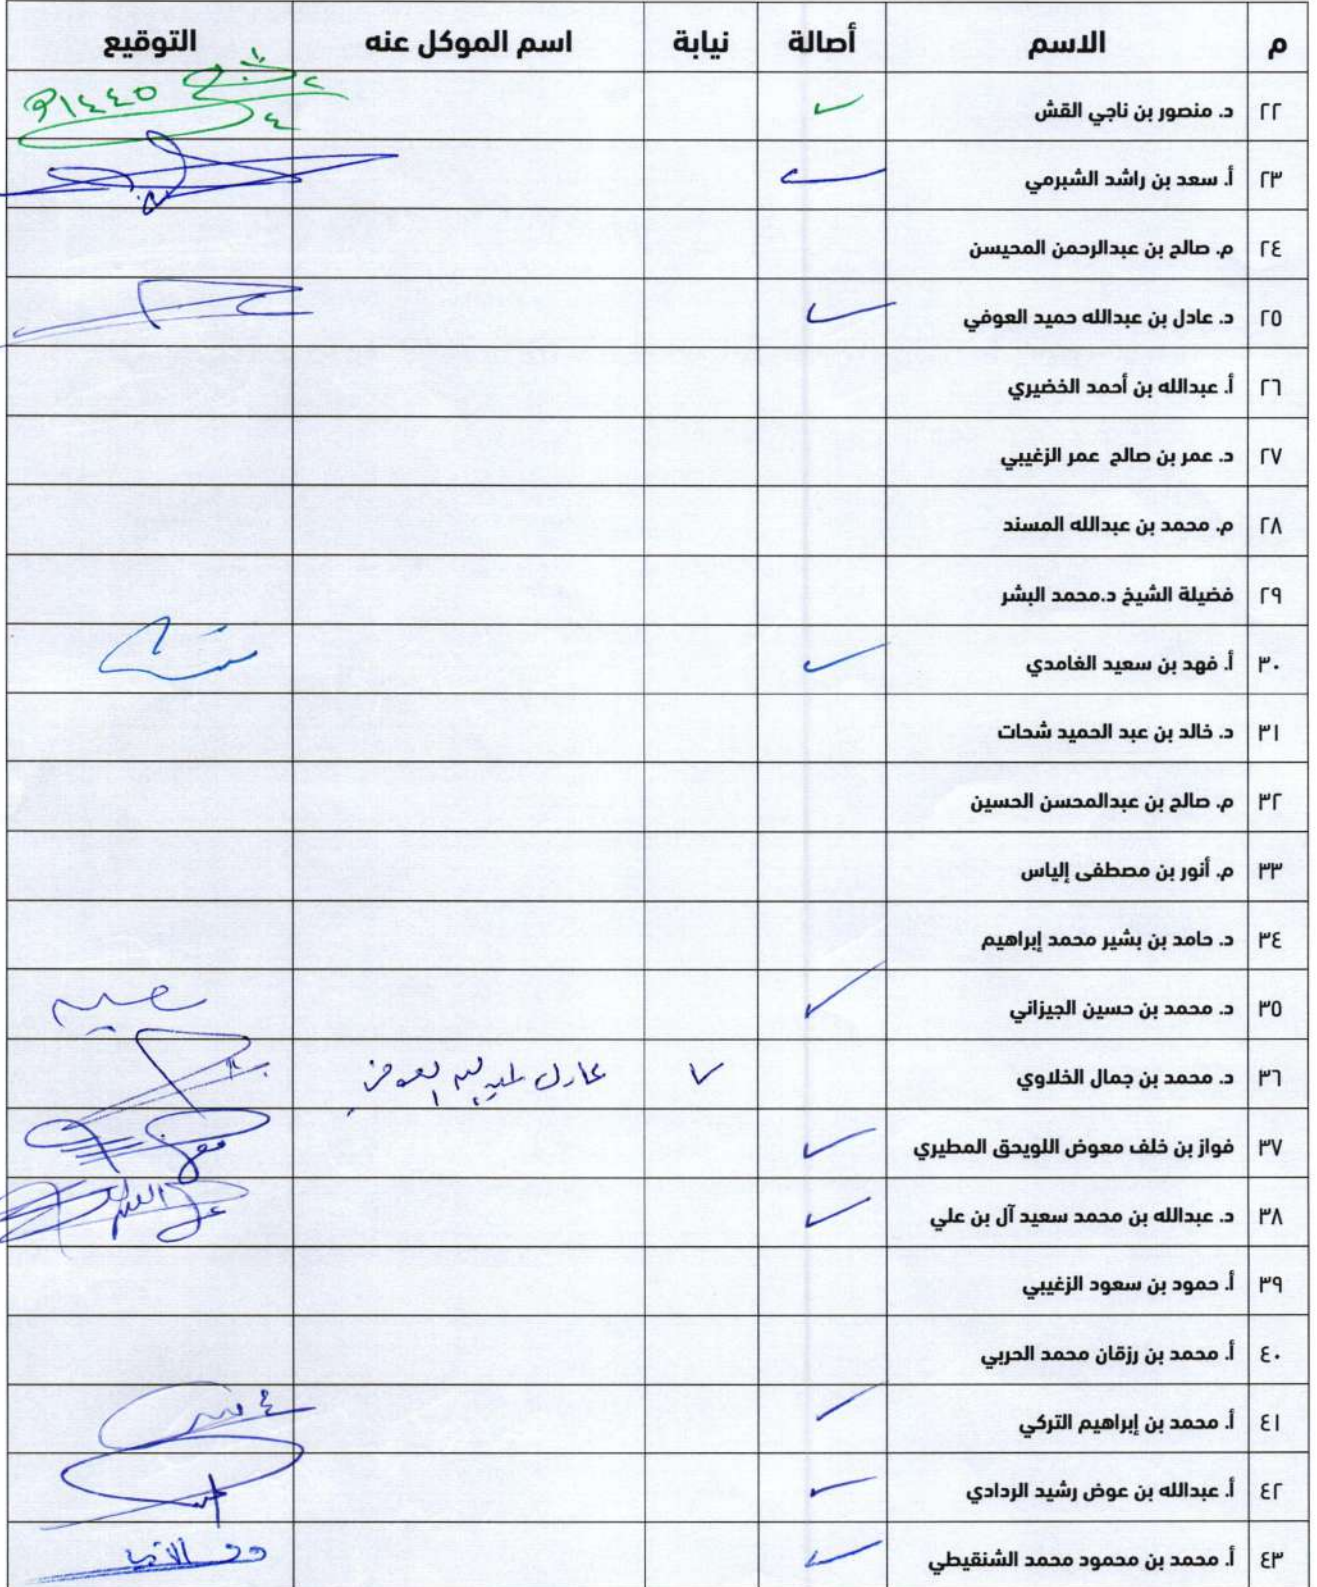 م الاسم أصالة نيابة اسم الموكل عنه التوقيع
٢٢ د. منصور بن ناجي القش ١٤٤٥
٢٣ أ. سعد بن راشد الشبرمي
٢٤ م. صالح بن عبدالرحمن المحيسن
٢٥ د. عادل بن عبدالله حميد العوفي
٢٦ أ. عبدالله بن أحمد الخضيري
٢٧ د. عمر بن صالح عمر الزغيبي
٢٨ م. محمد بن عبدالله المسند
٢٩ فضيلة الشيخ د.محمد البشر
٣٠ أ. فهد بن سعيد الغامدي
٣١ د. خالد بن عبد الحميد شحات
٣٢ م. صالح بن عبدالمحسن الحسين
٣٣ م. أنور بن مصطفى إلياس
٣٤ د. حامد بن بشير محمد إبراهيم
٣٥ د. محمد بن حسين الجيزاني
٣٦ د. محمد بن جمال الخلاوي عادل عبدالله العوفي
٣٧ فواز بن خلف معوض اللويحق المطيري
٣٨ د. عبدالله بن محمد سعيد آل بن علي
٣٩ أ. حمود بن سعود الزغيبي
٤٠ أ. محمد بن رزقان محمد الحربي
٤١ أ. محمد بن إبراهيم التركي
٤٢ أ. عبدالله بن عوض رشيد الردادي
٤٣ أ. محمد بن محمود محمد الشنقيطي